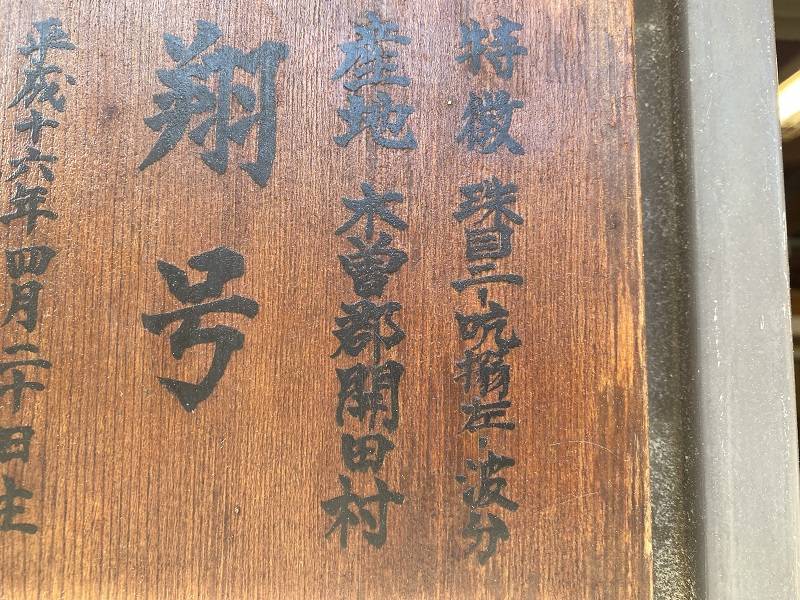 特徴 珠目二・吭搦左・波分
産地 木曽郡開田村
翔号
平成十六年四月二十日生